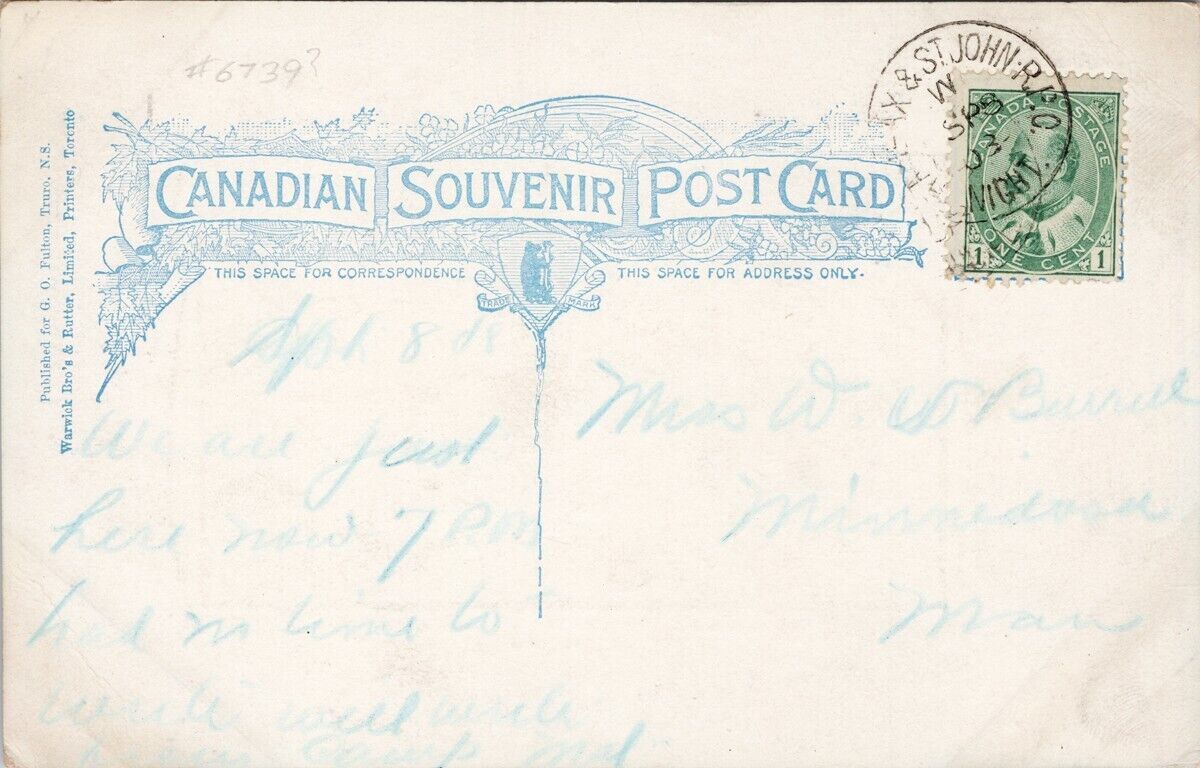 #6739?
Published for G. O. Fulton, Truro, N.S.
Warwick Bro's & Rutter, Limited, Printers, Toronto
CANADIAN SOUVENIR POST CARD
THIS SPACE FOR CORRESPONDENCE
THIS SPACE FOR ADDRESS ONLY.
TRADE MARK
& ST. JOHN. R.P.O.
W
SP 9
CANADA POSTAGE
1 ONE CENT 1
8
We are just
here now 7
had no time to
write will write
Camp
Mrs W
Minnedosa
Man